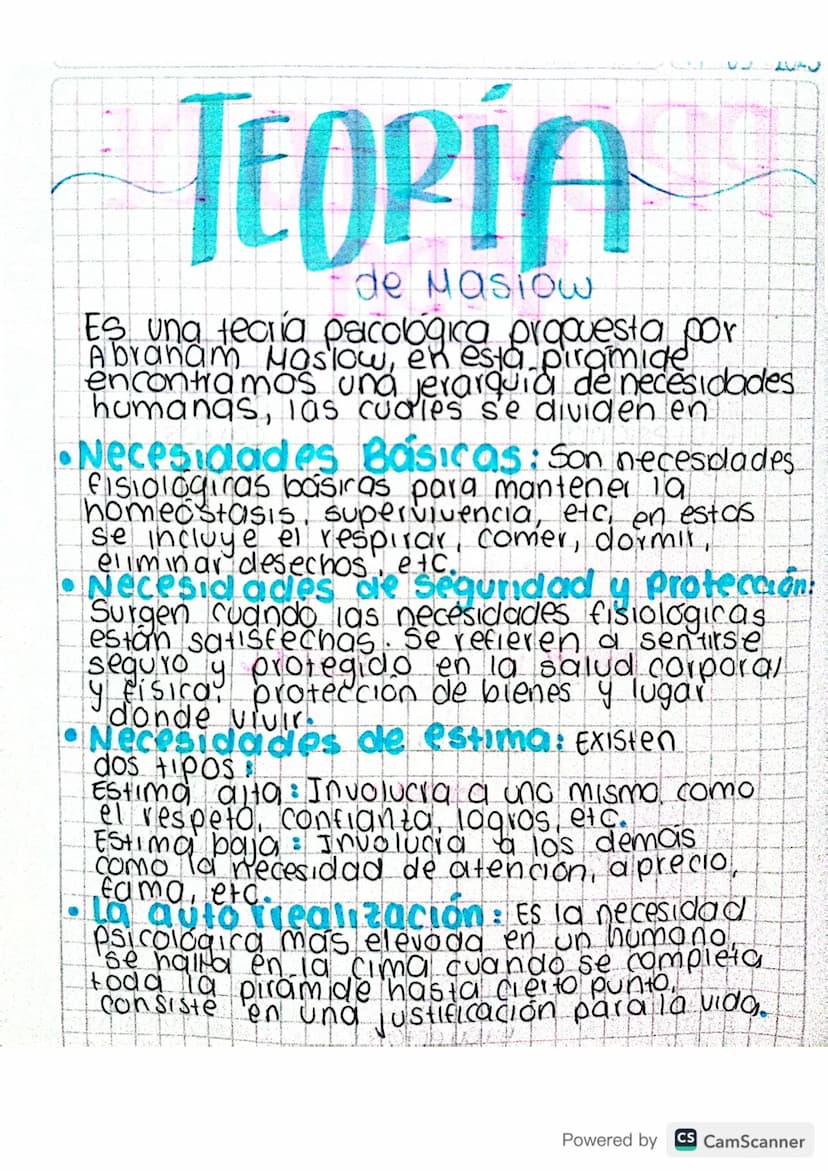 TEORÍA
de Maslow
Es una teoría psicológica propuesta por
Abraham Maslow, en esta pirámide
encontramos una jerarquía de necesidades
humanas, las cuales se dividen en
• Necesidades Básicas: Son necesidades
fisiológicas básicas para mantener la
homeóstasis, supervivencia, etc, en estas
se incluye el respirar, comer, dormir,
eliminar desechos, etc.
• Necesidades de seguridad y protección:
Surgen cuando las necesidades fisiológicas
están satisfechas. Se refieren a sentirse
seguro y protegido en la salud corporal
y física, protección de bienes y lugar
donde vivir.
• Necesidades de estima: Existen
dos tipos:
Estima alta: Involucra a uno mismo, como
el respeto, confianza, logros, etc.
Estima baja: Involucra a los demás
como la necesidad de atención, aprecio,
fama, etc.
• La auto rrealización: Es la necesidad
psicológica más elevada en un humano,
se halla en la cima cuando se completa
toda la pirámide hasta cierto punto,
consiste en una justificación para la vida.
Powered by CS CamScanner